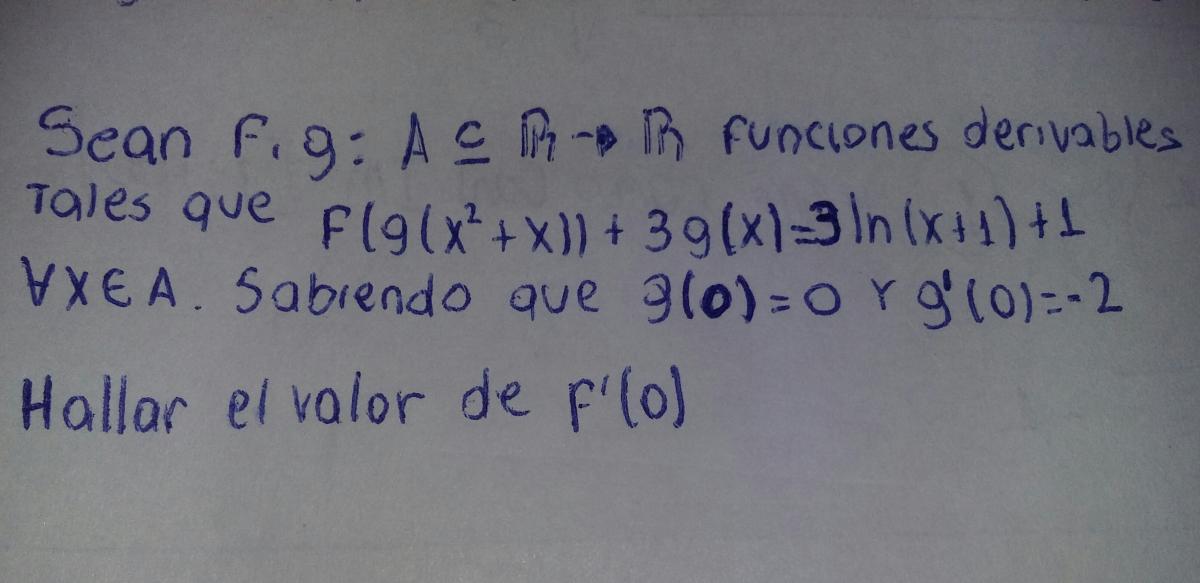 Sean F, g: A ⊆ ℝ → ℝ funciones derivables
Tales que F(g(x²+x)) + 3g(x)=3ln(x+1)+1
∀x∈A. Sabiendo que g(0)=0 Y g'(0)=-2
Hallar el valor de F'(0)